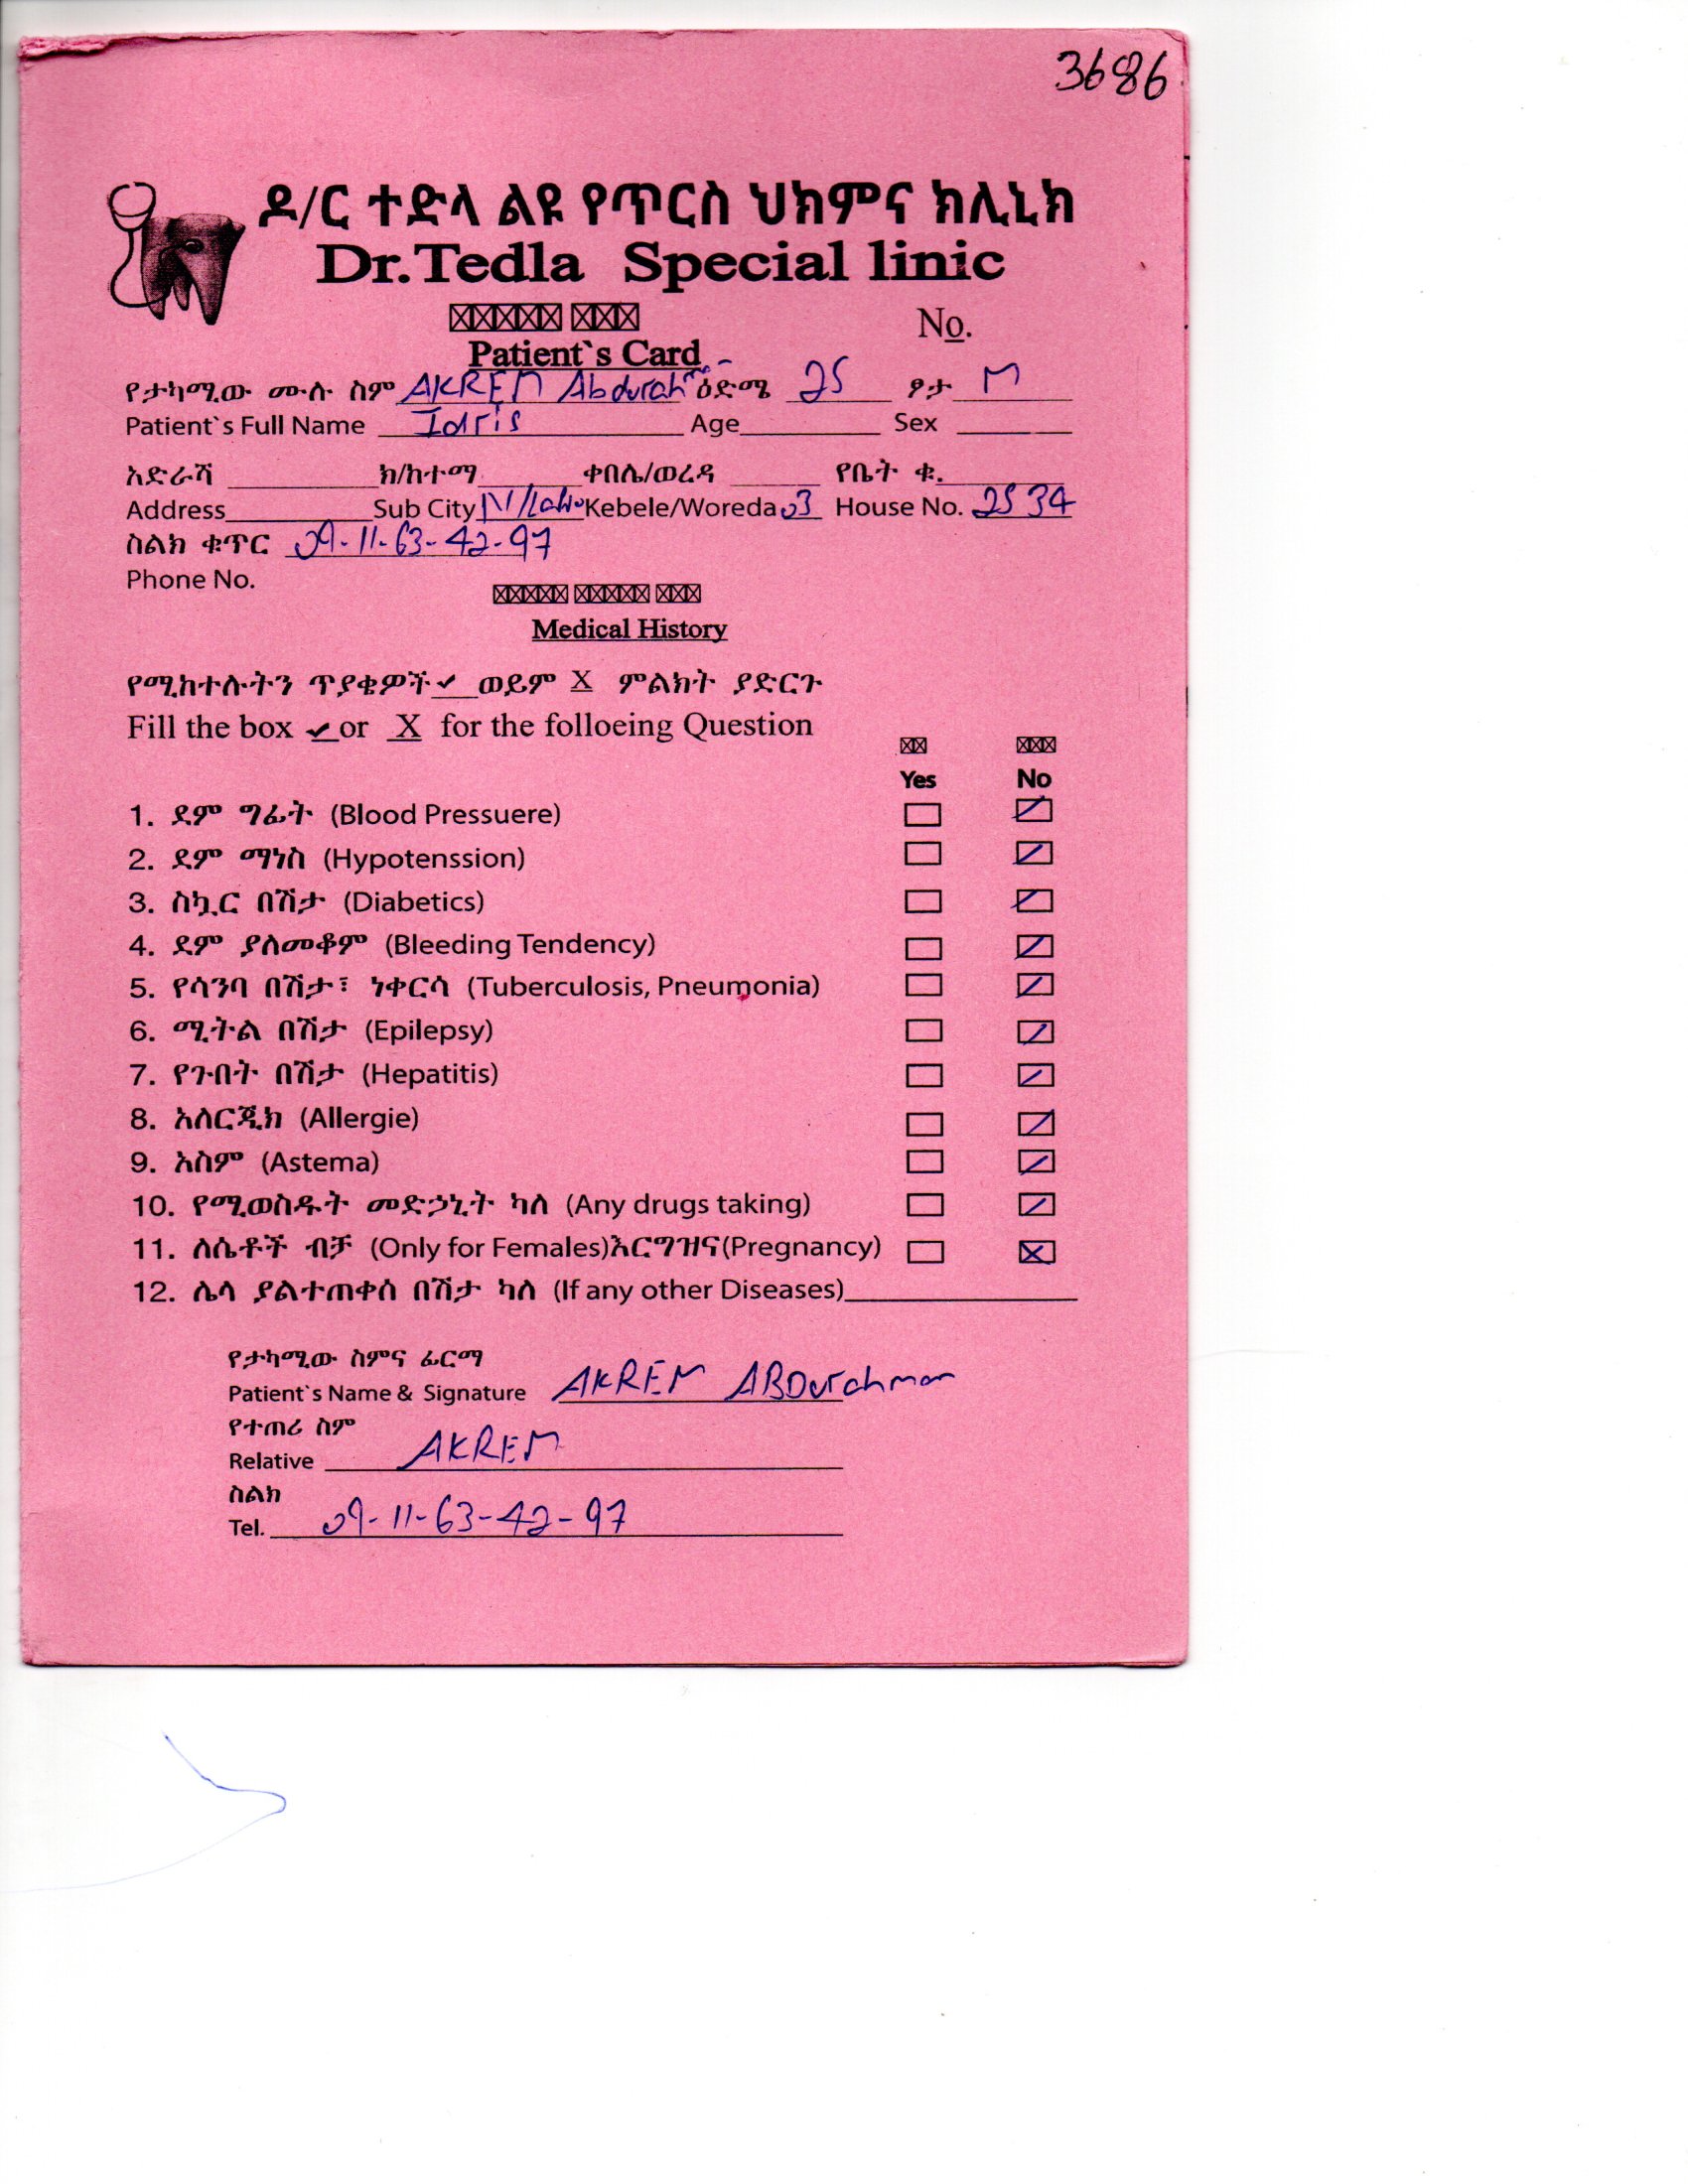 3686
ዶ/ር ተድላ ልዩ የጥርስ ህክምና ክሊኒክ
Dr.Tedla Special linic
No.
Patient`s Card
የታካሚው ሙሉ ስም AKREM Abdurah ዕድሜ 25 ፆታ M
Patient`s Full Name Idris Age Sex
አድራሻ ክ/ከተማ ቀበሌ/ወረዳ የቤት ቁ.
Address Sub City Kebele/Woreda 03 House No. 2534
ስልክ ቁጥር 09-11-63-42-97
Phone No.
Medical History
የሚከተሉትን ጥያቄዎች ✓ ወይም X ምልክት ያድርጉ
Fill the box ✓ or X for the folloeing Question
Yes No
1. ደም ግፊት (Blood Pressuere)
2. ደም ማነስ (Hypotenssion)
3. ስኳር በሽታ (Diabetics)
4. ደም ያለመቆም (Bleeding Tendency)
5. የሳንባ በሽታ፣ ነቀርሳ (Tuberculosis, Pneumonia)
6. ሚትል በሽታ (Epilepsy)
7. የጉበት በሽታ (Hepatitis)
8. አለርጂክ (Allergie)
9. አስም (Astema)
10. የሚወስዱት መድኃኒት ካለ (Any drugs taking)
11. ለሴቶች ብቻ (Only for Females)እርግዝና(Pregnancy)
12. ሌላ ያልተጠቀሰ በሽታ ካለ (If any other Diseases)
የታካሚው ስምና ፊርማ
Patient`s Name & Signature AKREM ABDurahman
የተጠሪ ስም
Relative AKREM
ስልክ
Tel. 09-11-63-42-97